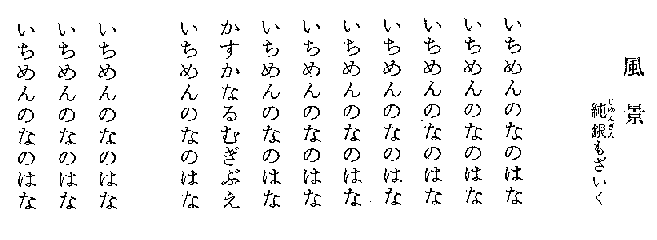 風景
じゅんぎん
純銀もざいく
いちめんのなのはな
いちめんのなのはな
いちめんのなのはな
いちめんのなのはな
いちめんのなのはな
いちめんのなのはな
いちめんのなのはな
かすかなるむぎぶえ
いちめんのなのはな
いちめんのなのはな
いちめんのなのはな
いちめんのなのはな